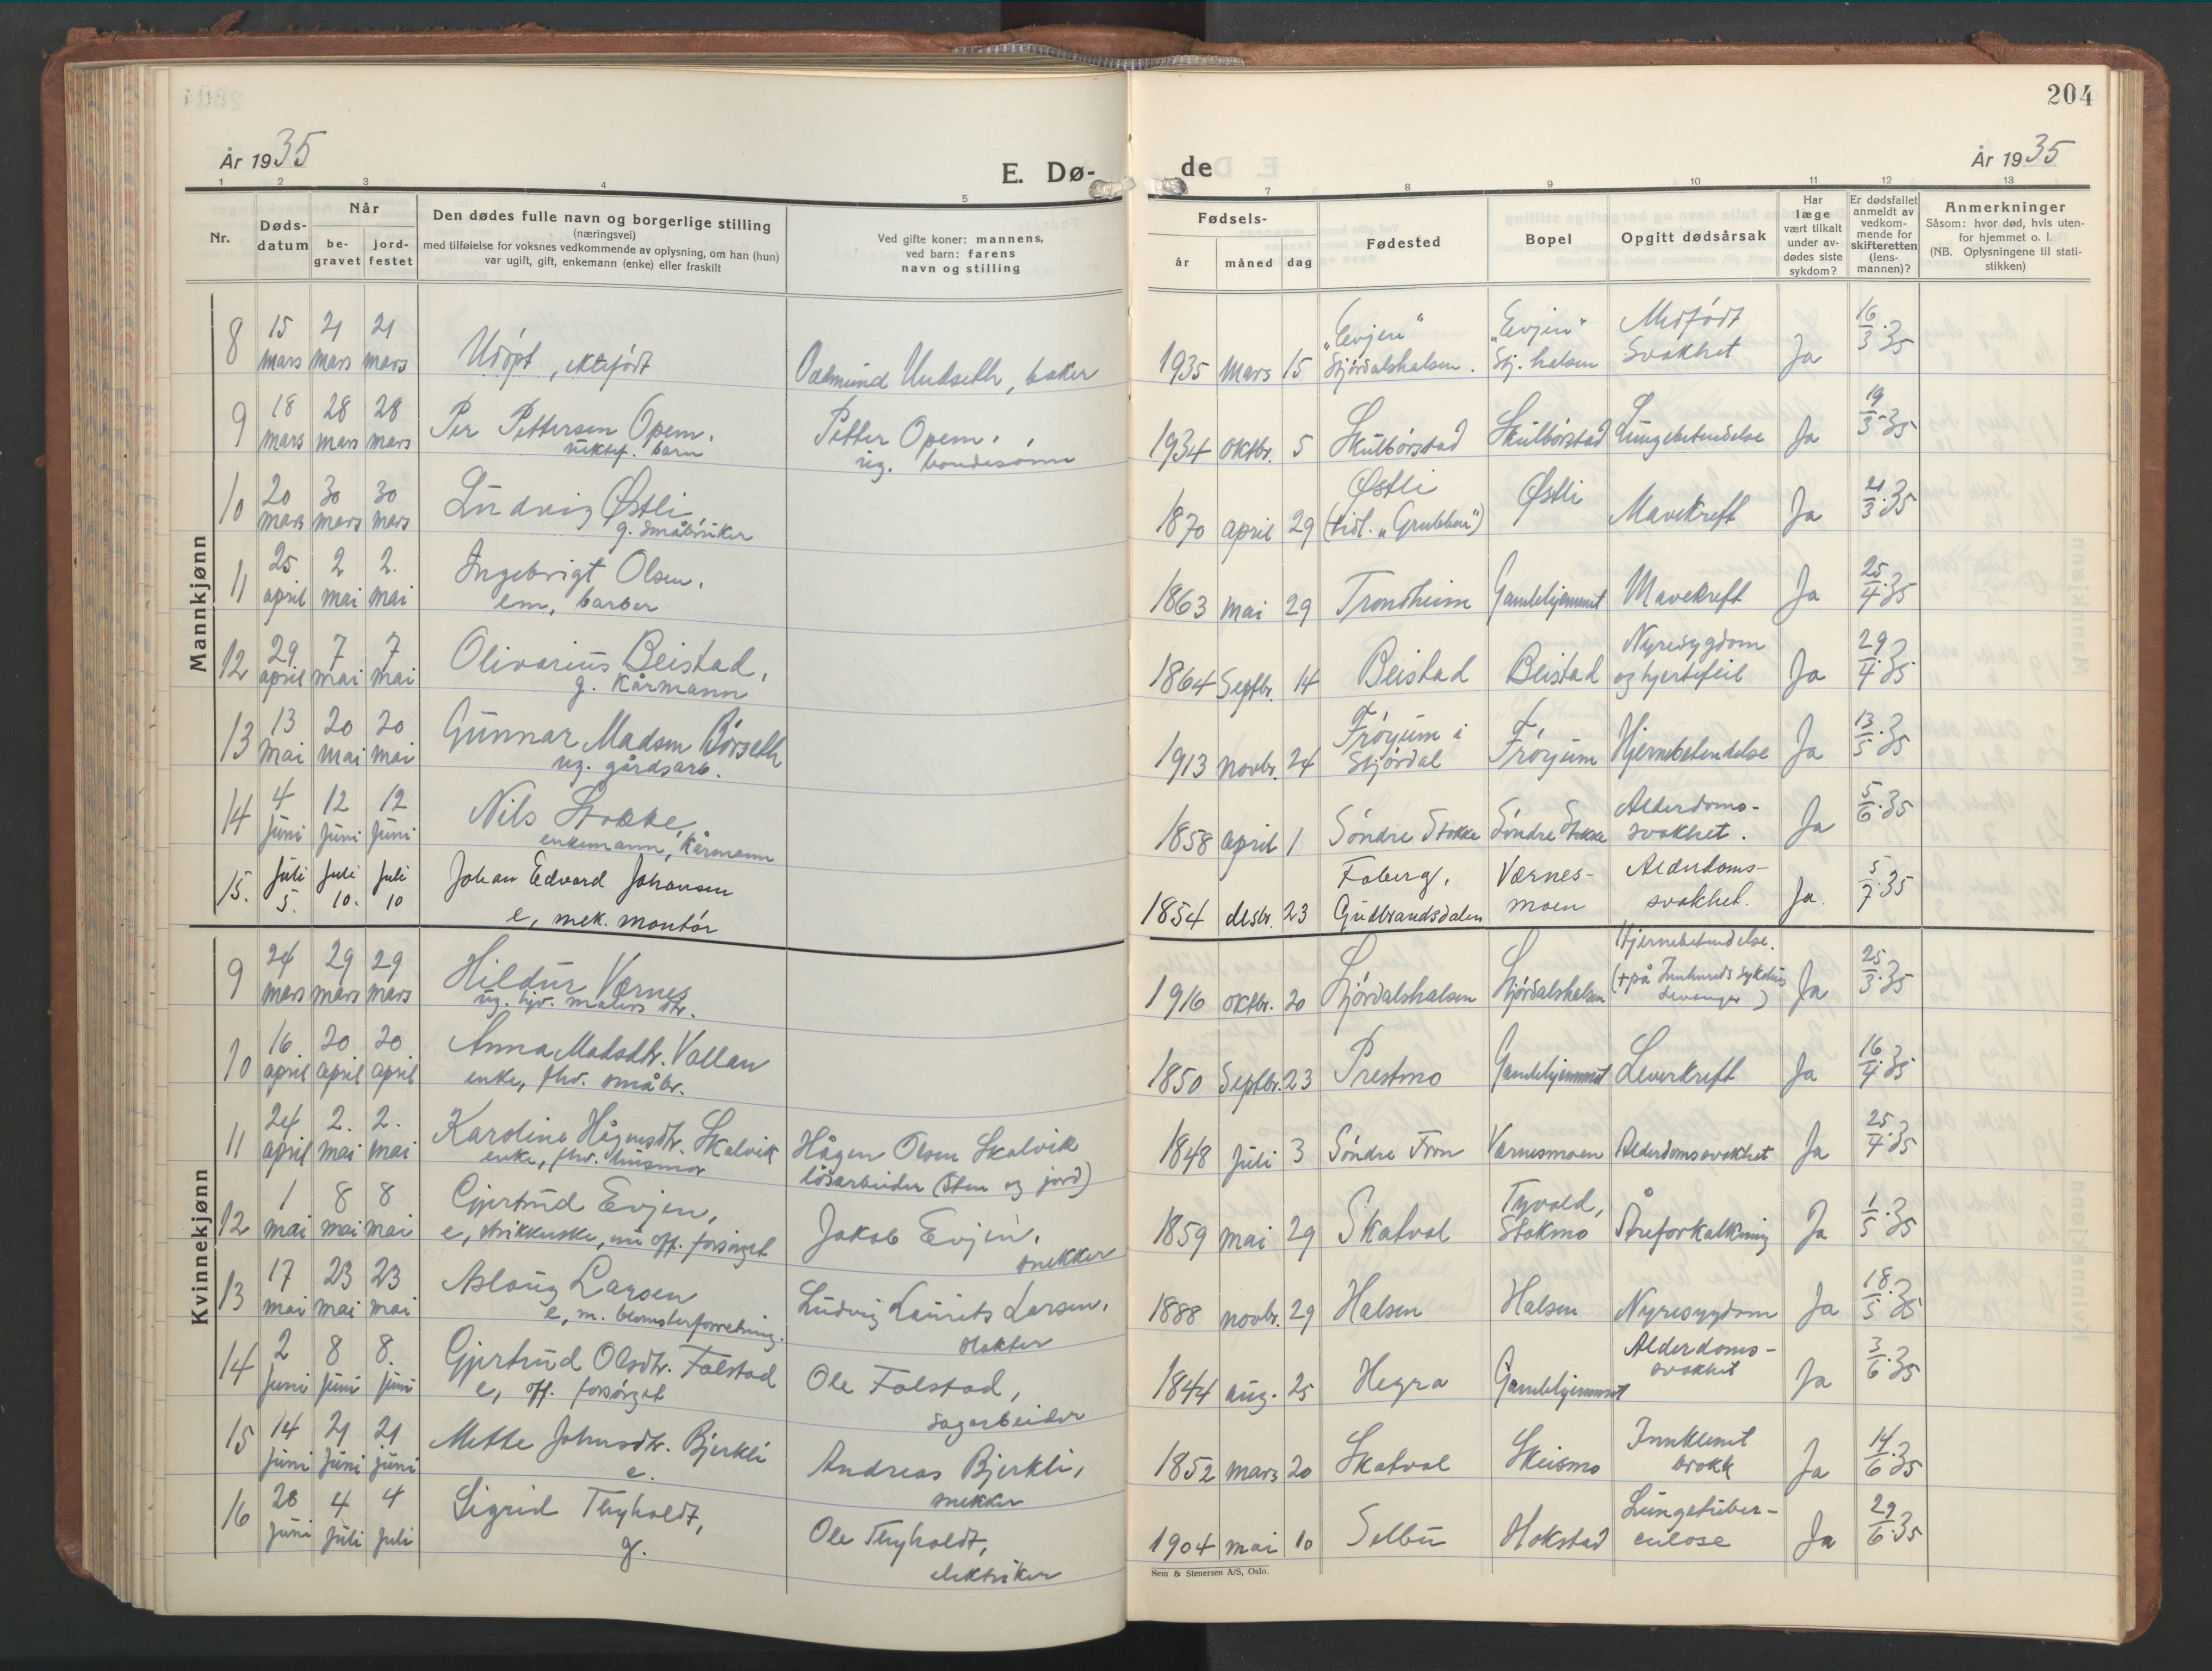 204
År 1935
E. Dø-
de
År 1935
1 2 3 4 5 7 8 9 10 11 12 13
Nr.
Døds-
datum
Når
be-
gravet
jord-
festet
Den dødes fulle navn og borgerlige stilling
(næringsvei)
med tilføielse for voksnes vedkommende av oplysning, om han (hun)
var ugift, gift, enkemann (enke) eller fraskilt
Ved gifte koner: mannens,
ved barn: farens
navn og stilling
Fødsels-
år måned dag
Fødested
Bopel
Opgitt dødsårsak
Har
læge
vært tilkalt
under av-
dødes siste
sykdom?
Er dødsfallet
anmeldt av
vedkom-
mende for
skifteretten
(lens-
mannen)?
Anmerkninger
Såsom: hvor død, hvis uten-
for hjemmet o. l.
(NB. Oplysningene til stati-
stikken)
Mannkjønn
8 15 mars 21 mars 21 mars Udøpt, ektefødt Oddmund Undseth, baker 1935 mars 15 "Evjen" Stjørdalshalsen. "Evjen" Stj. halsen Medfødt svakhet Ja 16/3.35
9 18 mars 28 mars 28 mars Per Pettersen Opem. uektef. barn Petter Opem. ug. bondesønn 1934 oktbr. 5 Skulbørstad Skulbørstad Lungebetendelse Ja 19/3.35
10 20 mars 30 mars 30 mars Ludvig Østli, g. småbruker 1870 april 29 Østli (tidl. "Grubben") Østli Mavekreft Ja 21/3.35
11 25 april 2 mai 2. mai Ingebrigt Olsen. em, barber 1863 mai 29 Trondheim Gamlehjemmet Mavekreft Ja 25/4.35
12 29 april 7 mai 7 mai Olivarius Beistad, g. kårmann 1864 Septbr. 14 Beistad Beistad Nyresygdom og hjertefeil Ja 29/4.35
13 13 mai 20 mai 20 mai Gunnar Madsen Børseth ug. gårdsarb. 1913 novbr. 24 Frøyum i Stjørdal Frøyum Hjernebetendelse Ja 13/5.35
14 4 juni 12 juni 12 juni Nils Stokke, enkemann, kårmann 1858 april 1 Søndre Stokke Søndre Stokke Alderdoms-svakhet. Ja 5/6.35
15. juli 5. juli 10. juli 10 Johan Edvard Johansen e, mek. montør 1854 desbr. 23 Faberg, Gudbrandsdalen Værnes-moen Alderdoms-svakhet. Ja. 5/7.35
Kvinnekjønn
9 24 mars 29 mars 29 mars Hildur Værnes ug. hjv. malers dtr. 1916 oktbr. 20 Stjørdalshalsen Stjørdalshalsen Hjernebetendelse. (+ på Innherreds sykehus Levanger) Ja 25/3.35
10 16. april 20 april 20 april Anna Matsdtr. Vollan enke, fhv. småbr. 1850 Septbr. 23 Prestmo Gamlehjemmet Leverkreft Ja 16/4.35
11 24 april 2. mai 2. mai Karoline Hågensdtr. Skalvik enke, fhv. husmor Hågen Olsen Skalvik løsarbeider (sten og jord) 1848 juli 3 Søndre Fron Værnesmoen Alderdomssvakhet Ja 25/4.35
12 1 mai 8 mai 8 mai Gjertrud Evjen, e, strikkerske, nu off. forsørget Jakob Evjen, snekker 1859 mai 29 Skatval Tyvold, Stokmo Åreforkalkning Ja 1/5.35
13 17 mai 23 mai 23 mai Aslaug Larsen e, m. blomsterforretning. Ludvig Laurits Larsen, slakter 1888 novbr. 29 Halsen Halsen Nyresygdom Ja 18/5.35
14 2 juni 8 juni 8. juni Gjertrud Olsdtr. Folstad e, off. forsørget Ole Folstad, sagarbeider 1844 aug. 25 Hegra Gamlehjemmet Alderdoms-svakhet Ja 3/6.35
15 14 juni 21 juni 21 juni Mette Johnsdtr. Bjerkli e. Andreas Bjerkli, snekker 1852 mars 20 Skatval Skeismo Innklemt brokk Ja 14/6.35
16 28 juni 4 juli 4 juli Sigrid Thyholdt, g. Ole Thyholdt, elektriker 1904 mai 10 Selbu Hokstad Lungetuber-culose Ja 29/6.35
Sem & Stenersen A/S, Oslo.